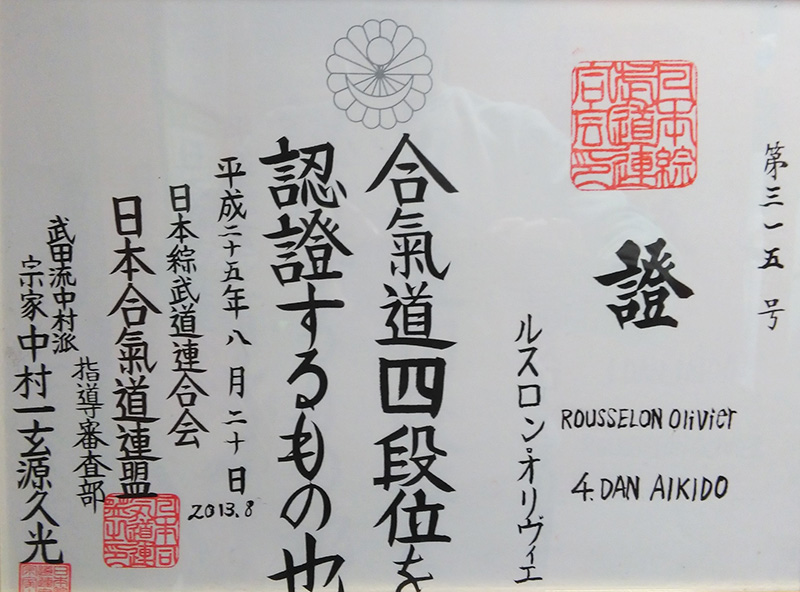 第三一五号
證
ROUSSELON Olivier
4. DAN AIKIDO
ルスロン・オリヴィエ
合氣道四段位を
認證するもの也
平成二十五年八月二十日
2013.8
日本綜武道連合会
日本合氣道連盟
指導審査部
武田流中村派
宗家中村一玄源久光